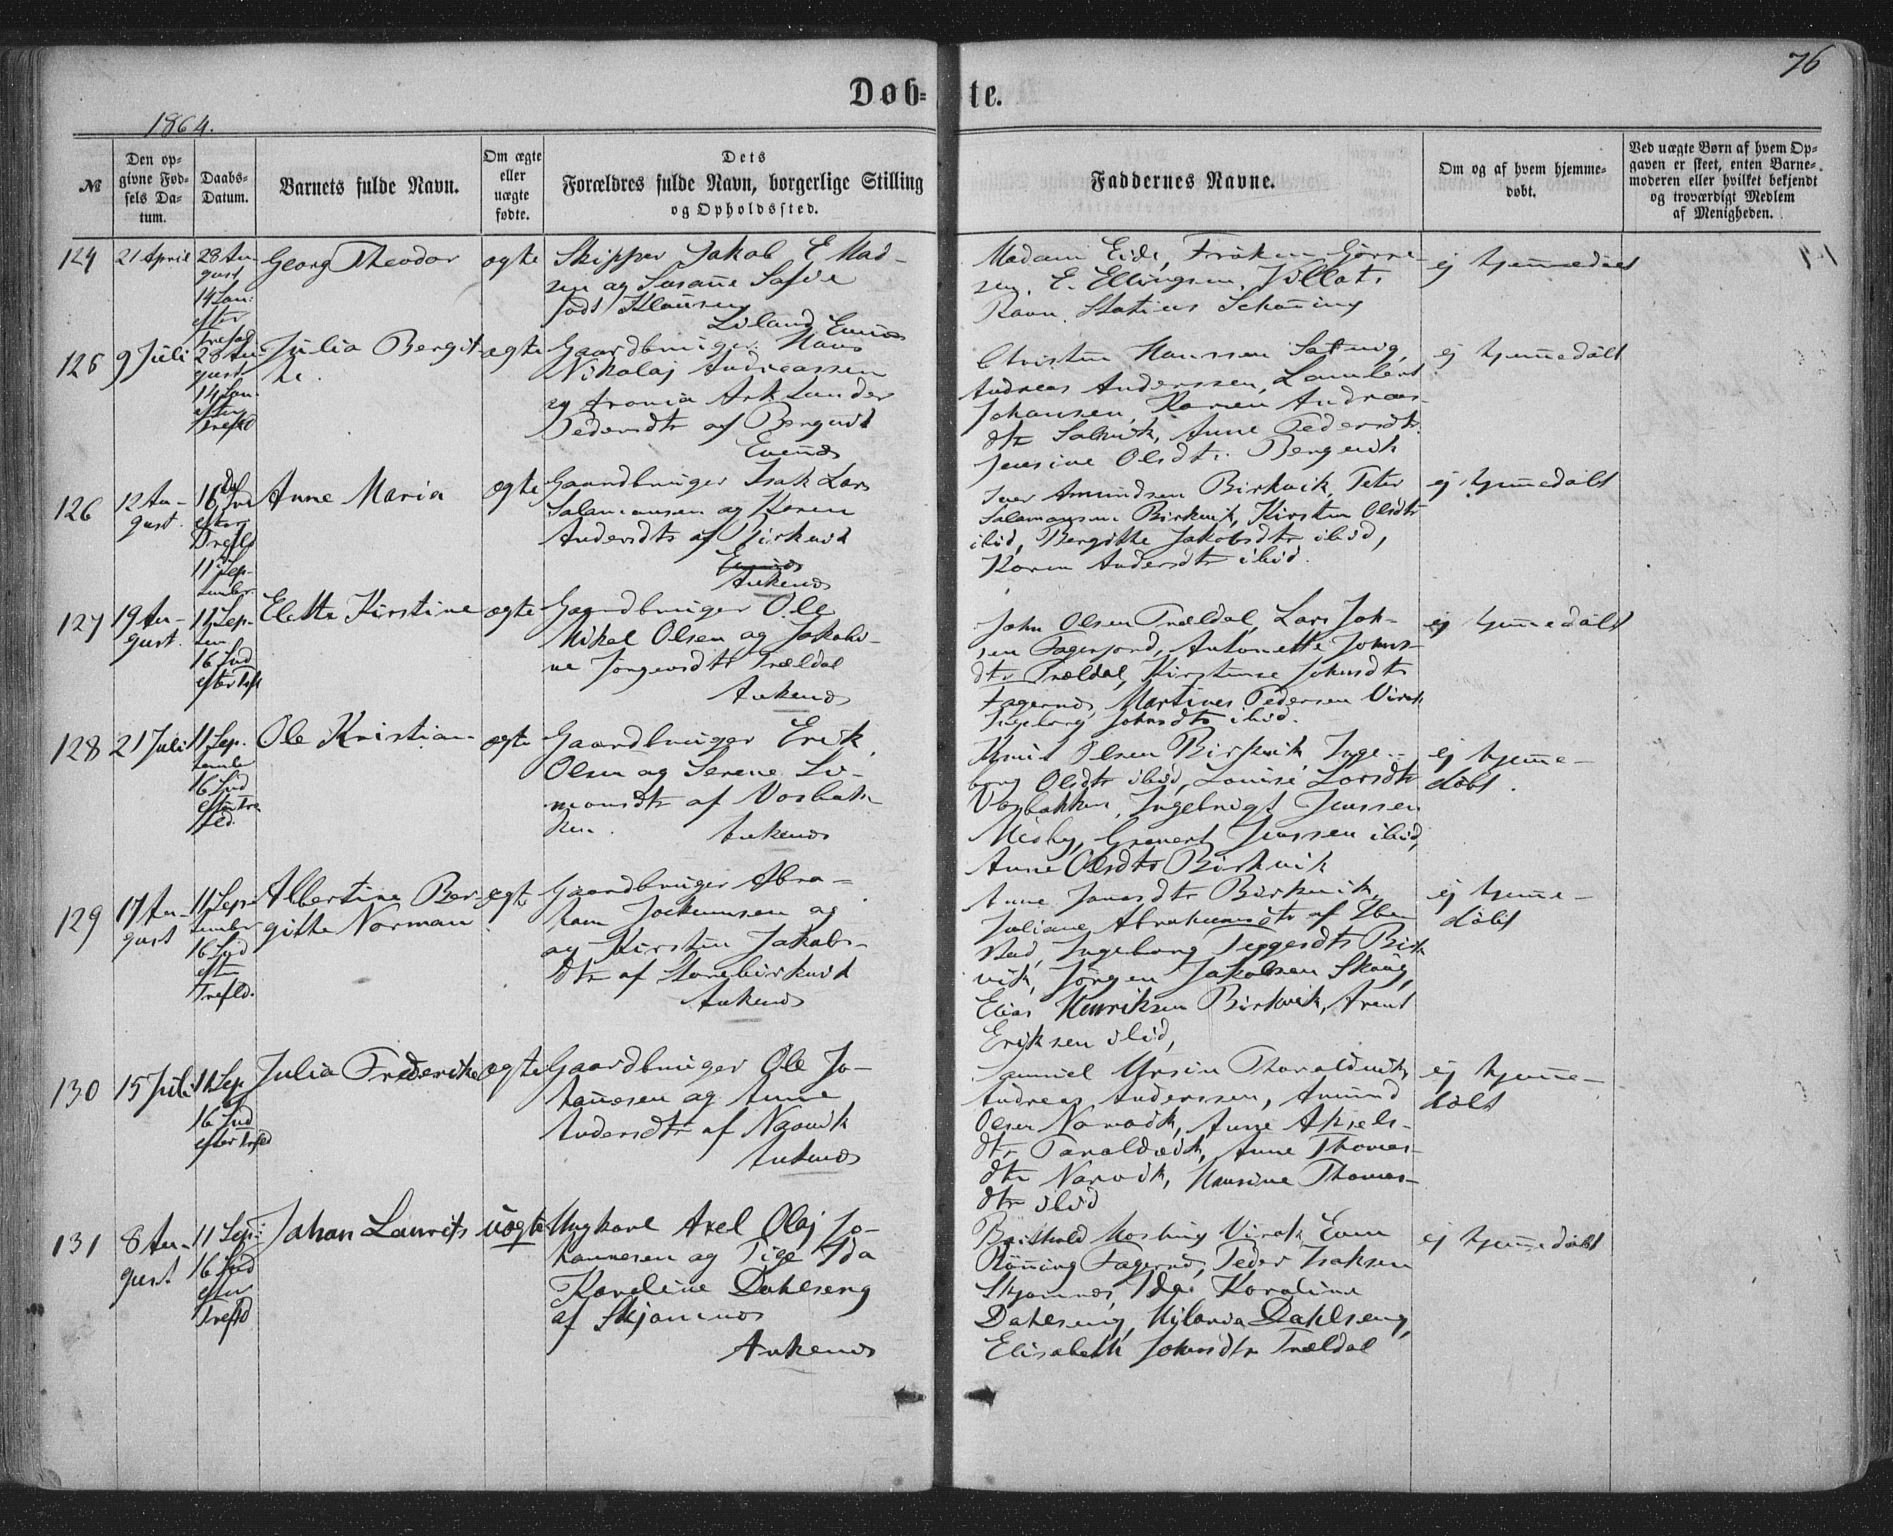 76
Døb-te.
1864.
№
Den opgivne Fødsels Datum.
Daabs-Datum.
Barnets fulde Navn.
Om ægte eller uægte fødte.
Dets Forældres fulde Navn, borgerlige Stilling og Opholdssted.
Faddernes Navne.
Om og af hvem hjemmedøbt.
Ved uægte Børn af hvem Opgaven er skeet, enten Barnemoderen eller hvilket bekjendt og troværdigt Medlem af Menigheden.
124
21 April
28 August
14 Søn: efter Trefold
Georg Theodor
ægte
Skipper Jakob E Mad-
sen og Susanne Sofie
født Klausen
Liland Evenæs
Madam Eide, Frøken Gørre-
sen, E. Ellingsen,
Ravn. Schøning
ej hjemmedøbt
126
9 Juli
28 August
14 Søn. efter Trefld
Julia Bergit-
he.
ægte
Gaardbruger Hans
Nikolaj Andreassen
og
Pedersdtr af Bergvik
Evenæs
Hanssen
Andreas Anderssen, Lambert
Johansen, Karen Andreas-
dtr Anne Pedersdtr
Jensine Olsdtr Bergvik
ej hjemmedøbt
126
12 Au-
gust.
16de Snd efter Trefld
11 September
Anne Maria
ægte
Gaardbruger Isak Lars
Salamonsen og Karen
Andersdtr af Birkvik
Evenæs
Ankenæs
Iver Amundsen Birkvik, Peter
Salamonsen Birkvik, Kirsten Olsdtr
ibid, Bergithe Jakobsdtr ibid,
Karen Andersdtr ibid.
ej hjemmedøbt
127
19 Au-
gust.
11 Sep-
tem
16 Snd
efter Trf
Elette Kirstine
ægte
Gaardbruger Ole
Mikal Olsen og Jakobi-
ne Jørgensdtr Trældal
Ankenæs
John Olsen Trældal, Lars Joh-
sen Fagerjord, Antonette Johns-
dtr Trældal, Kirstine Johnsdtr
Fagernæs, Martines Pedersen Virak
Ingeborg Johnsdtr ibid.
ej hjemmedøbt
128
21 Juli
11 Sep-
tember
16 Snd
efter Tre
fld.
Ole Kristian
ægte
Gaardbruger Erik
Olsen og Serene Si-
monsdtr af Vosbak-
ken.
Ankenæs
Knut Olsen Birkvik, Inge-
borg Olsdtr ibid, Lovise Larsdtr
Vosbakken, Ingebrigt Jenssen
Jenssen ibid,
Anne Olsdtr Birkvik
ej hjemme-
døbt.
129
17 Au-
gust
11 Sep-
tember
16 Snd
efter
Trefld.
Albertine Ber-
githe Norman
ægte
Gaardbruger Abra-
ham Jochumsen og
og Kirsten Jakobs-
dtr af Storebirkvik
Ankenæs
Anne Jonsdtr Birkvik,
Juliane Abrahamsdtr af Iben
stad, Ingeborg Birk-
vik, Jørgen Jakobsen Skoug,
Elias Henriksen Birkvik, Arent
Eriksen ibid,
ej hjemme-
døbt
130
15 Juli
11 Sep
16 Snd
efter Trfld
Julia Frederike
ægte
Gaardbruger Ole Jo-
hannesen og Anne
Andersdtr af Narvik
Ankenæs
Samuel Ursin Taraldsvik,
Andreas Anderssen, Amund
Olsen Narvik, Anne Axels-
dtr Taraldsvik, Anne Thomas-
dtr Narvik, Hansine Thomas-
dtr ibid
ej hjemme-
døbt
131
8 Au-
gust
11 Sep:
16 Snd
efter
Trefld
Johan Laurits
uægte
Ungkarl Axel Olaj Jo-
hannesen og Pige Ida
Karoline Dahlseng
af Skjomnæs
Ankenæs
Virak, Even
Rønning Fagernæs, Peder Isaksen
Skjomnæs, Ida Karoline
Dahlseng, Hilanda Dahlseng,
Elisabeth Johnsdtr Trældal
ej hjemmedøbt